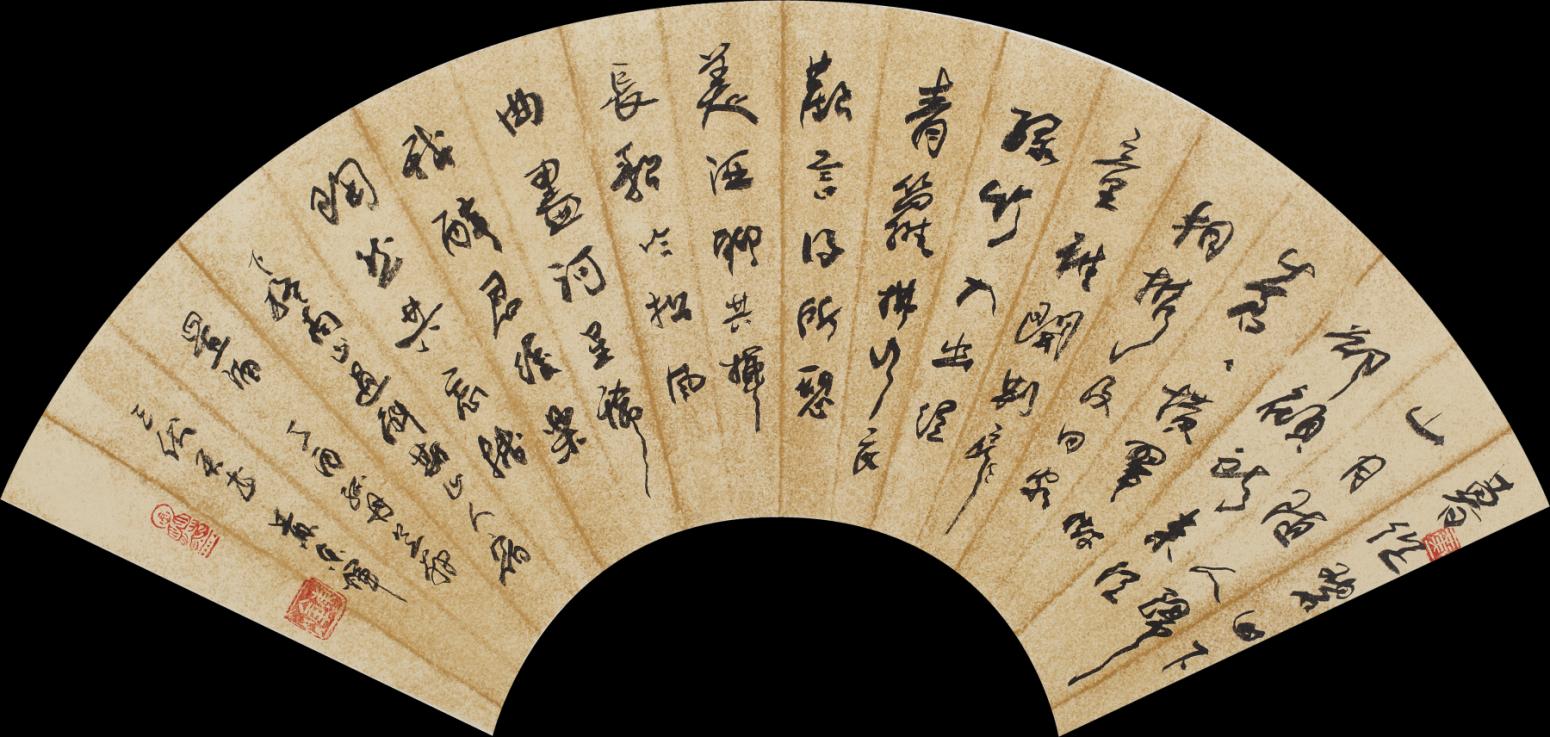 暮從碧山下
山月隨人歸
卻顧所來徑
蒼蒼橫翠微
相攜及田家
童稚開荊扉
綠竹入幽徑
青蘿拂行衣
歡言得所憩
美酒聊共揮
長歌吟松風
曲盡河星稀
我醉君復樂
陶然共忘機
下終南山過斛斯山人宿
置酒